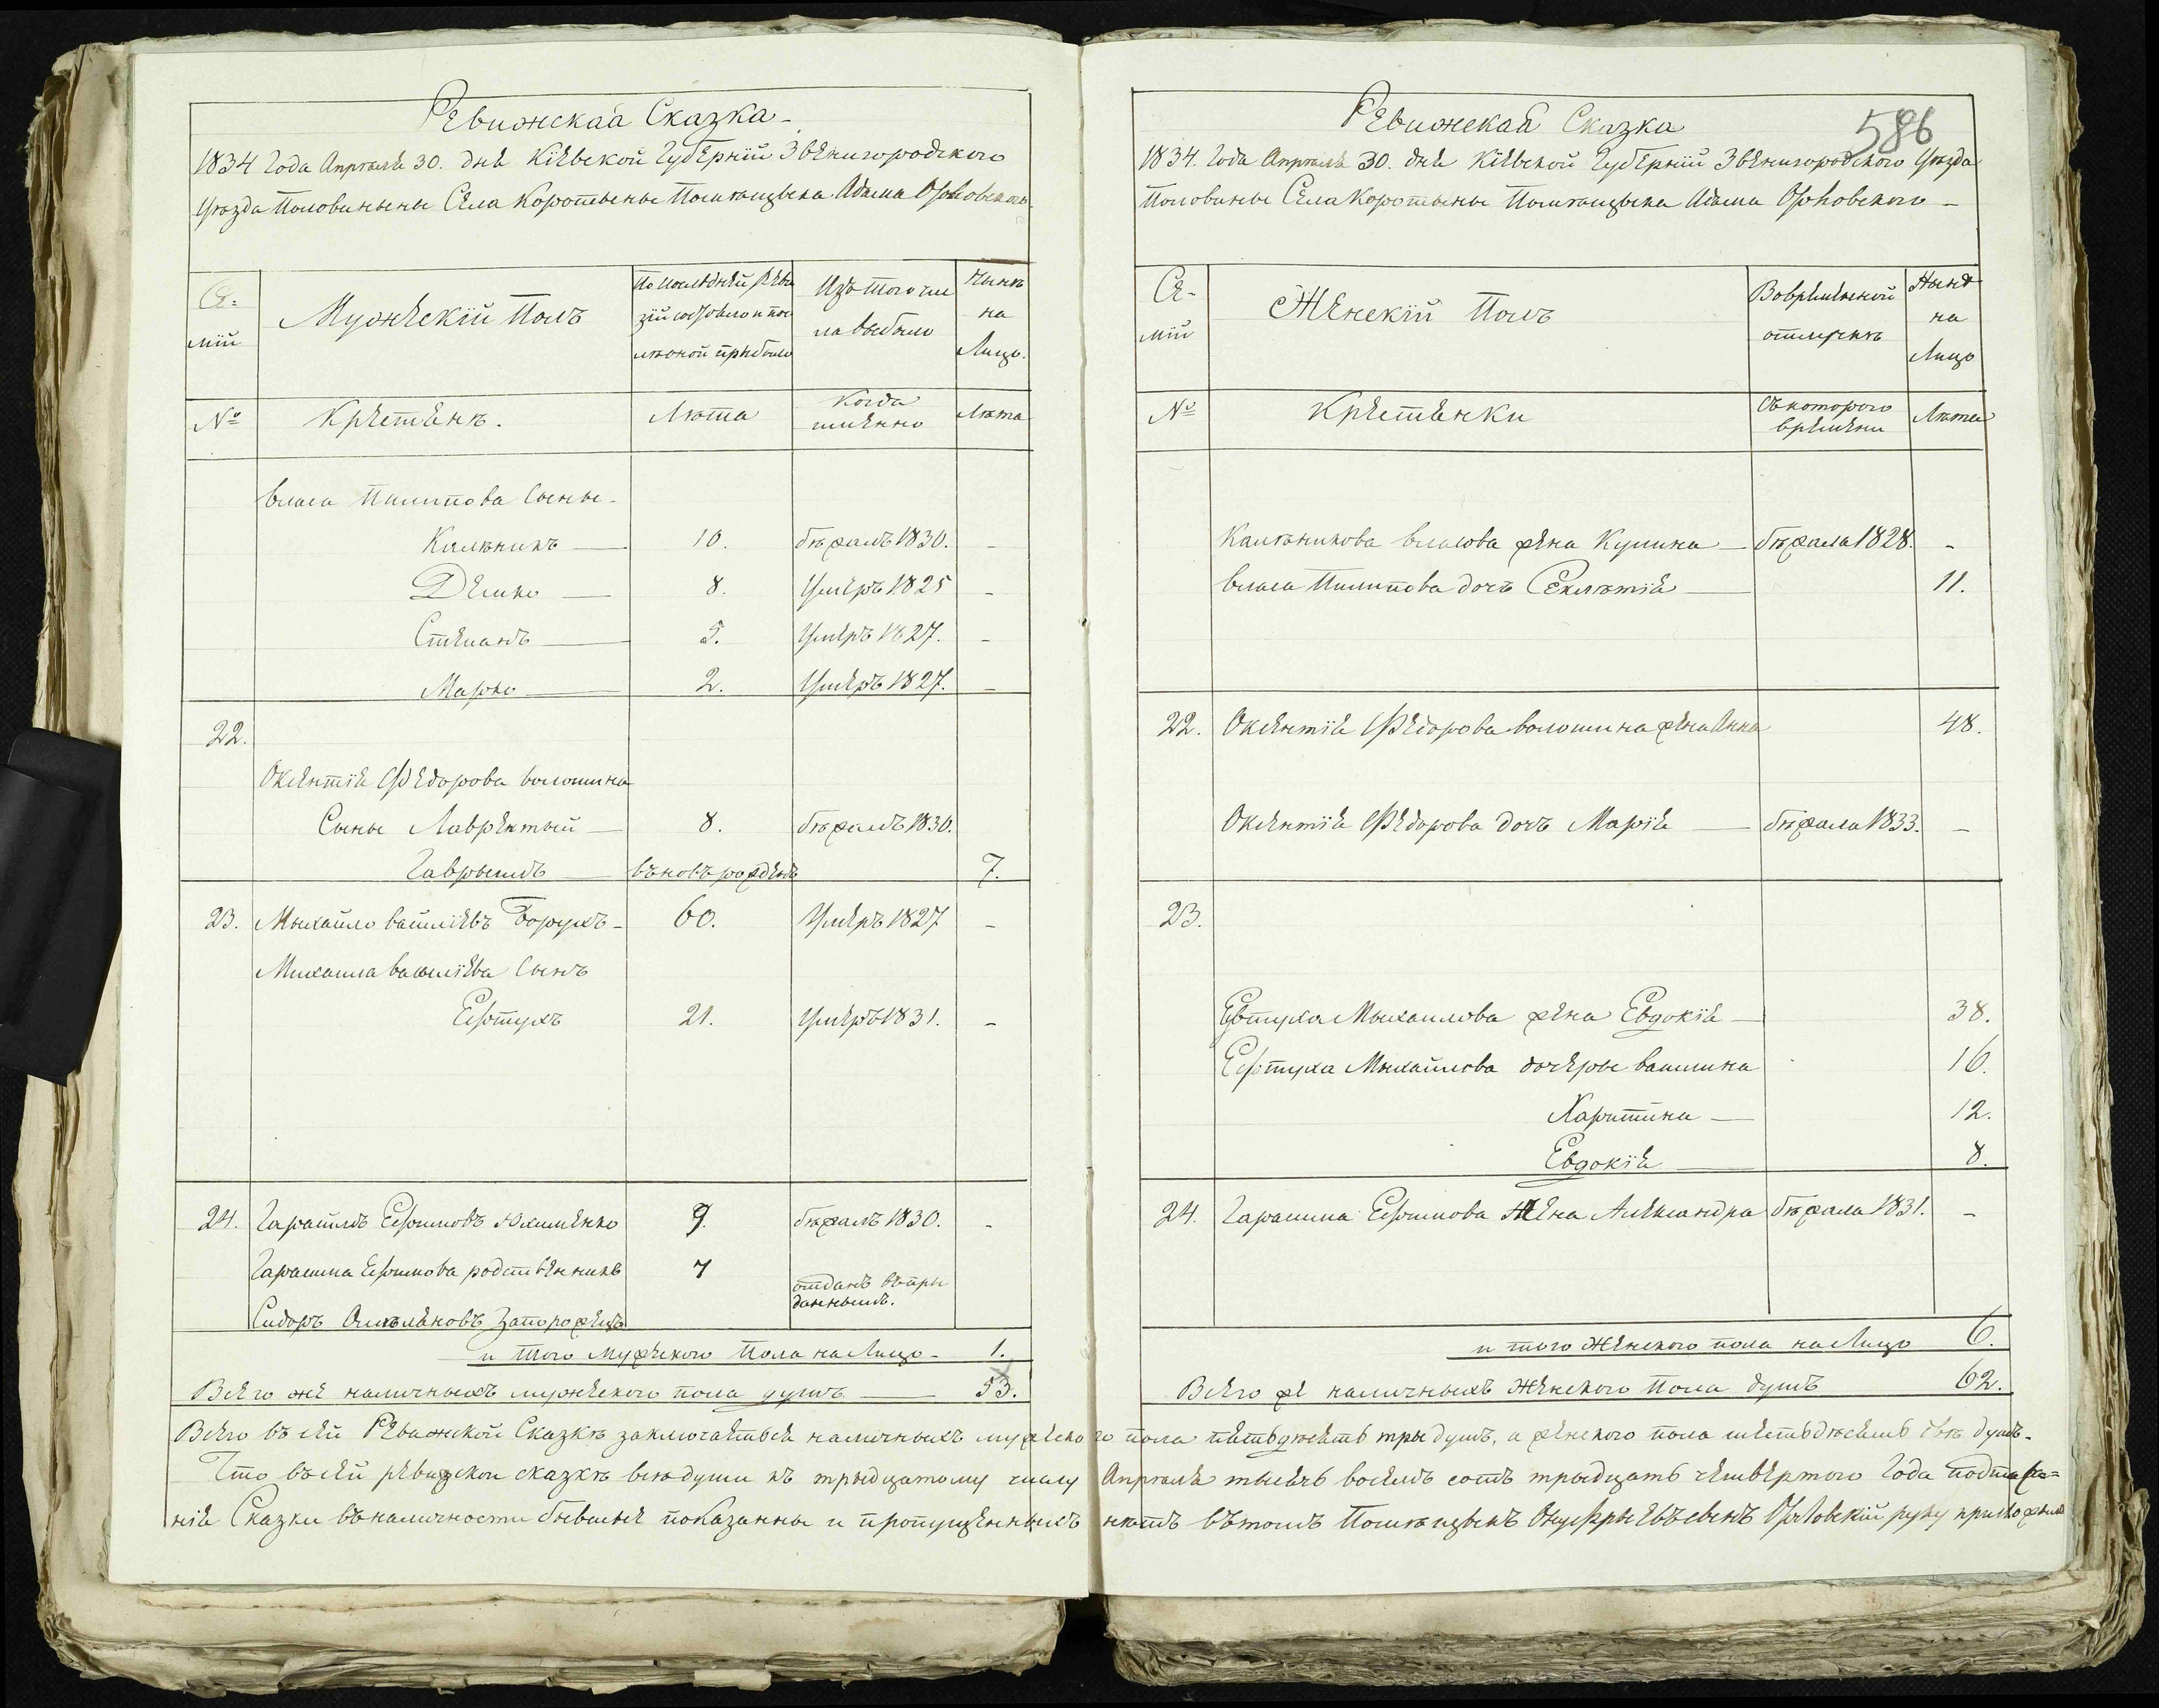 Ревижская Сказка
1834 Года Апреля 30. дня Кіевской Губерніи Звенигородского
Уезда Половинены Села Коротыны Помещика Адама Орловского
Се-
мій
Мужескій Полъ
По последней реви
зіи состояло и пос
ле оной прибыло
Изъ того чис
ла выбыло
Ныне
на
Лицо.
№
Крестяне.
Лета
Когда
именно
Лета
Власа Пилипова Сыны
Калѣникъ 10. бѣжалъ 1830. -
Демко 8. Умеръ 1825 -
Степанъ 5. Умеръ 1827. -
Марко 2. Умеръ 1827. -
22.
Оксентія Федорова Волошина
Сыны Лаврентый 8. бѣжалъ 1830.
Гаврыилъ въновъ рожденъ 7.
23. Мыхайло Василіевъ 60. Умеръ 1827 -
Михаила Василіева Сынъ
Евтухъ 21. Умеръ 1831. -
24. Гарасимъ Ефимовъ Юхименко 9. бѣжалъ 1830. -
Гарасима Ефимова родственникъ 7 отданъ въ при
даннымъ.
Сидоръ Омеляновъ Запорожецъ
и того мужеского Пола на Лицо - 1.
Всего же наличныхъ мужеского пола душъ 53.
Ревижская Сказка
586
1834. Года Апреля 30. дня Кіевской Губерніи Звенигородского Уезда
Половины Села Коротыны Помещика Адама Орловского -
Се-
мій
Женскій Полъ
Во временной
отлучкѣ
Ныне
на
Лицо
№
Крестянки
Съ которого
времени
Лета
Калѣникова Власова жена Кулина бѣжала 1828. -
Власа Пилипова дочъ 11.
22. Оксентія Федорова Волошина жена Анна 48.
Оксентія Федорова дочъ Марія бѣжала 1833. -
23.
Евтуха Мыхаилова жена Евдокія 38.
Евтуха Мыхайлова дочеры Василина 16.
Харитина 12.
Евдокія 8.
24. Гарасима Ефимова Жена Александра бѣжала 1831. -
и того Женского пола на Лицо 6.
Всего же наличныхъ Женского Пола душъ 62.
Всего въ сей Ревижской Сказкѣ заключаеться наличныхъ мужеского пола пятьдесять тры душъ, а женского пола шестьдесятъ двѣ душъ.
Что въ сей ревизской сказкѣ всѣ души къ трыдцатому числу Апреля тысячъ восемъ сотъ трыдцать четвертого Года подписа-
нія Сказки въ наличности бывшіе показанны и пропущенныхъ нѣтъ въ томъ Помещикъ Орловскій руку приложилъ